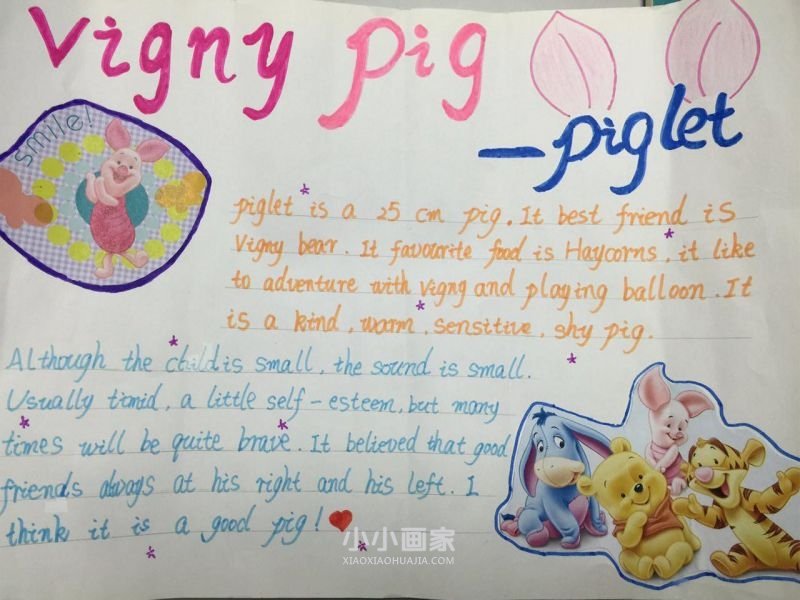 Vigny Pig
—piglet
smile!
piglet is a 25 cm pig. It best friend is
Vigny bear. It favourite food is Haycorns, it like
to adventure with vigng and playing balloon. It
is a kind, warm, sensitive, shy pig.
Although the child is small, the sound is small.
Usually timid, a little self-esteem, but many
times will be quite brave. It believed that good
friends always at his right and his left. I
think it is a good pig!
小小画家
XIAOXIAOHUAJIA.COM